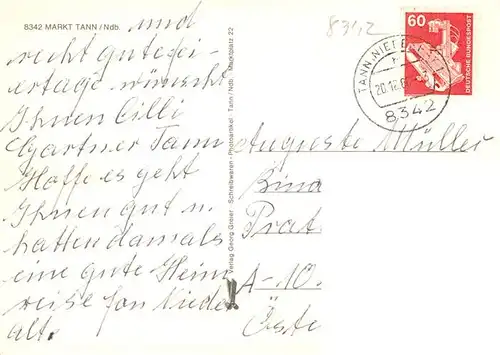 8342 MARKT TANN / Ndb.
und
recht gute fei-
ertage wünscht
Ihnen Cilli
Gartner Tann
Hoffe es geht
Ihnen gut u.
hatten damals
eine gute Heim
reise von Nieder
alt.
Verlag Georg Greier · Schreibwaren - Photoartikel · Tann / Ndb. · Marktplatz 22
8342
60
DEUTSCHE BUNDESPOST
TANN, NIEDERB
20.12.
8342
Auguste Müller
Prat
A-10
Öste